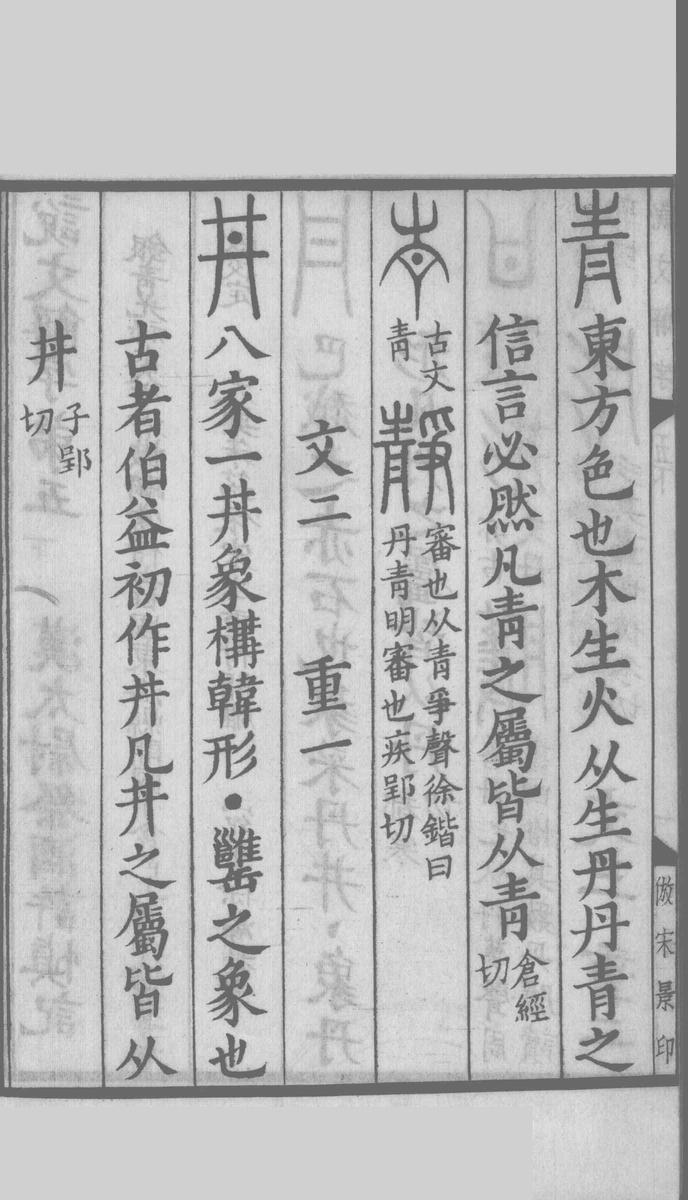 靑東方色也木生火从生丹丹青之
信言必然凡青之屬皆从青倉經切
古文青 靜審也从青爭聲徐鍇曰丹青明審也疾郢切
文二 重一
丼八家一丼象構韓形•𦉥之象也
古者伯益初作丼凡丼之屬皆从
丼子郢切
倣宋景印